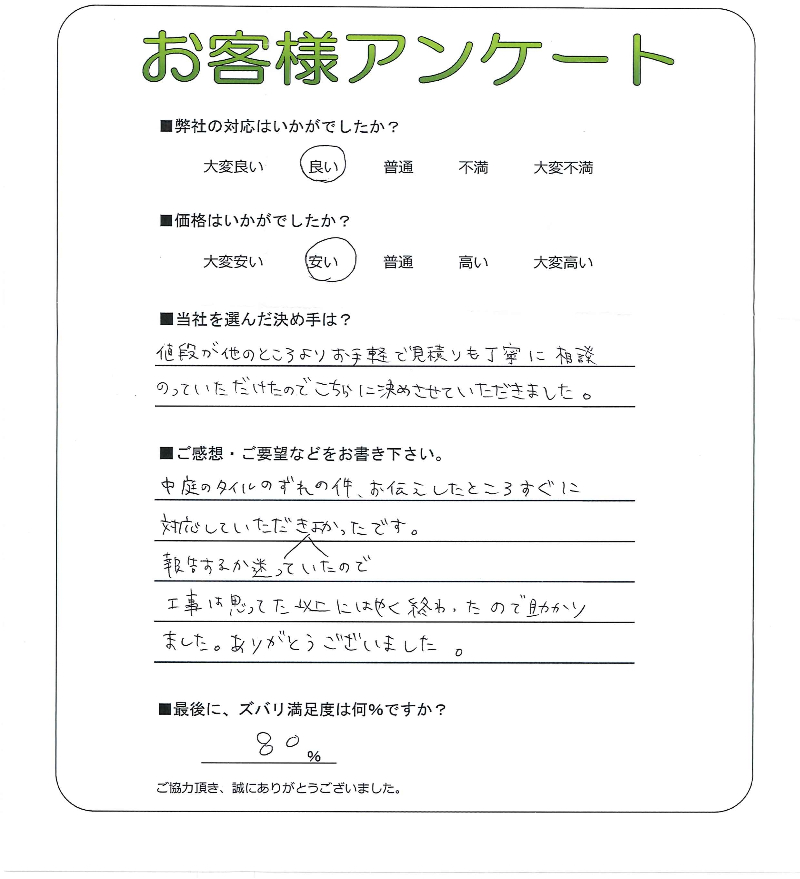 お客様アンケート
■弊社の対応はいかがでしたか？
大変良い 良い 普通 不満 大変不満
■価格はいかがでしたか？
大変安い 安い 普通 高い 大変高い
■当社を選んだ決め手は？
値段が他のところよりお手軽で見積りも丁寧に相談
のっていただけたのでこちらに決めさせていただきました。
■ご感想・ご要望などをお書き下さい。
中庭のタイルのずれの件、お伝えしたところすぐに
対応していただきよかったです。
報告するか迷っていたので
工事は思ってた以上にはやく終わったので助かり
ました。ありがとうございました。
■最後に、ズバリ満足度は何%ですか？
80%
ご協力頂き、誠にありがとうございました。